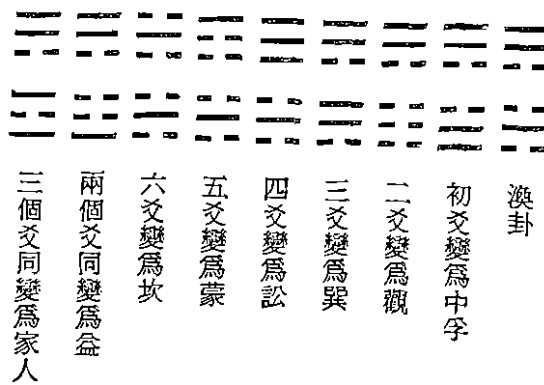 渙卦
初爻變爲中孚
二爻變爲觀
三爻變爲巽
四爻變爲訟
五爻變爲蒙
六爻變爲坎
兩個爻同變爲益
三個爻同變爲家人